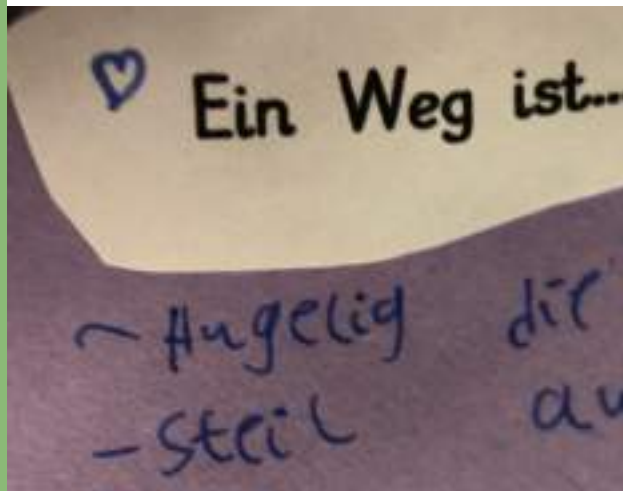 ♡ Ein Weg ist...
~ Hugelig die
- Steil au